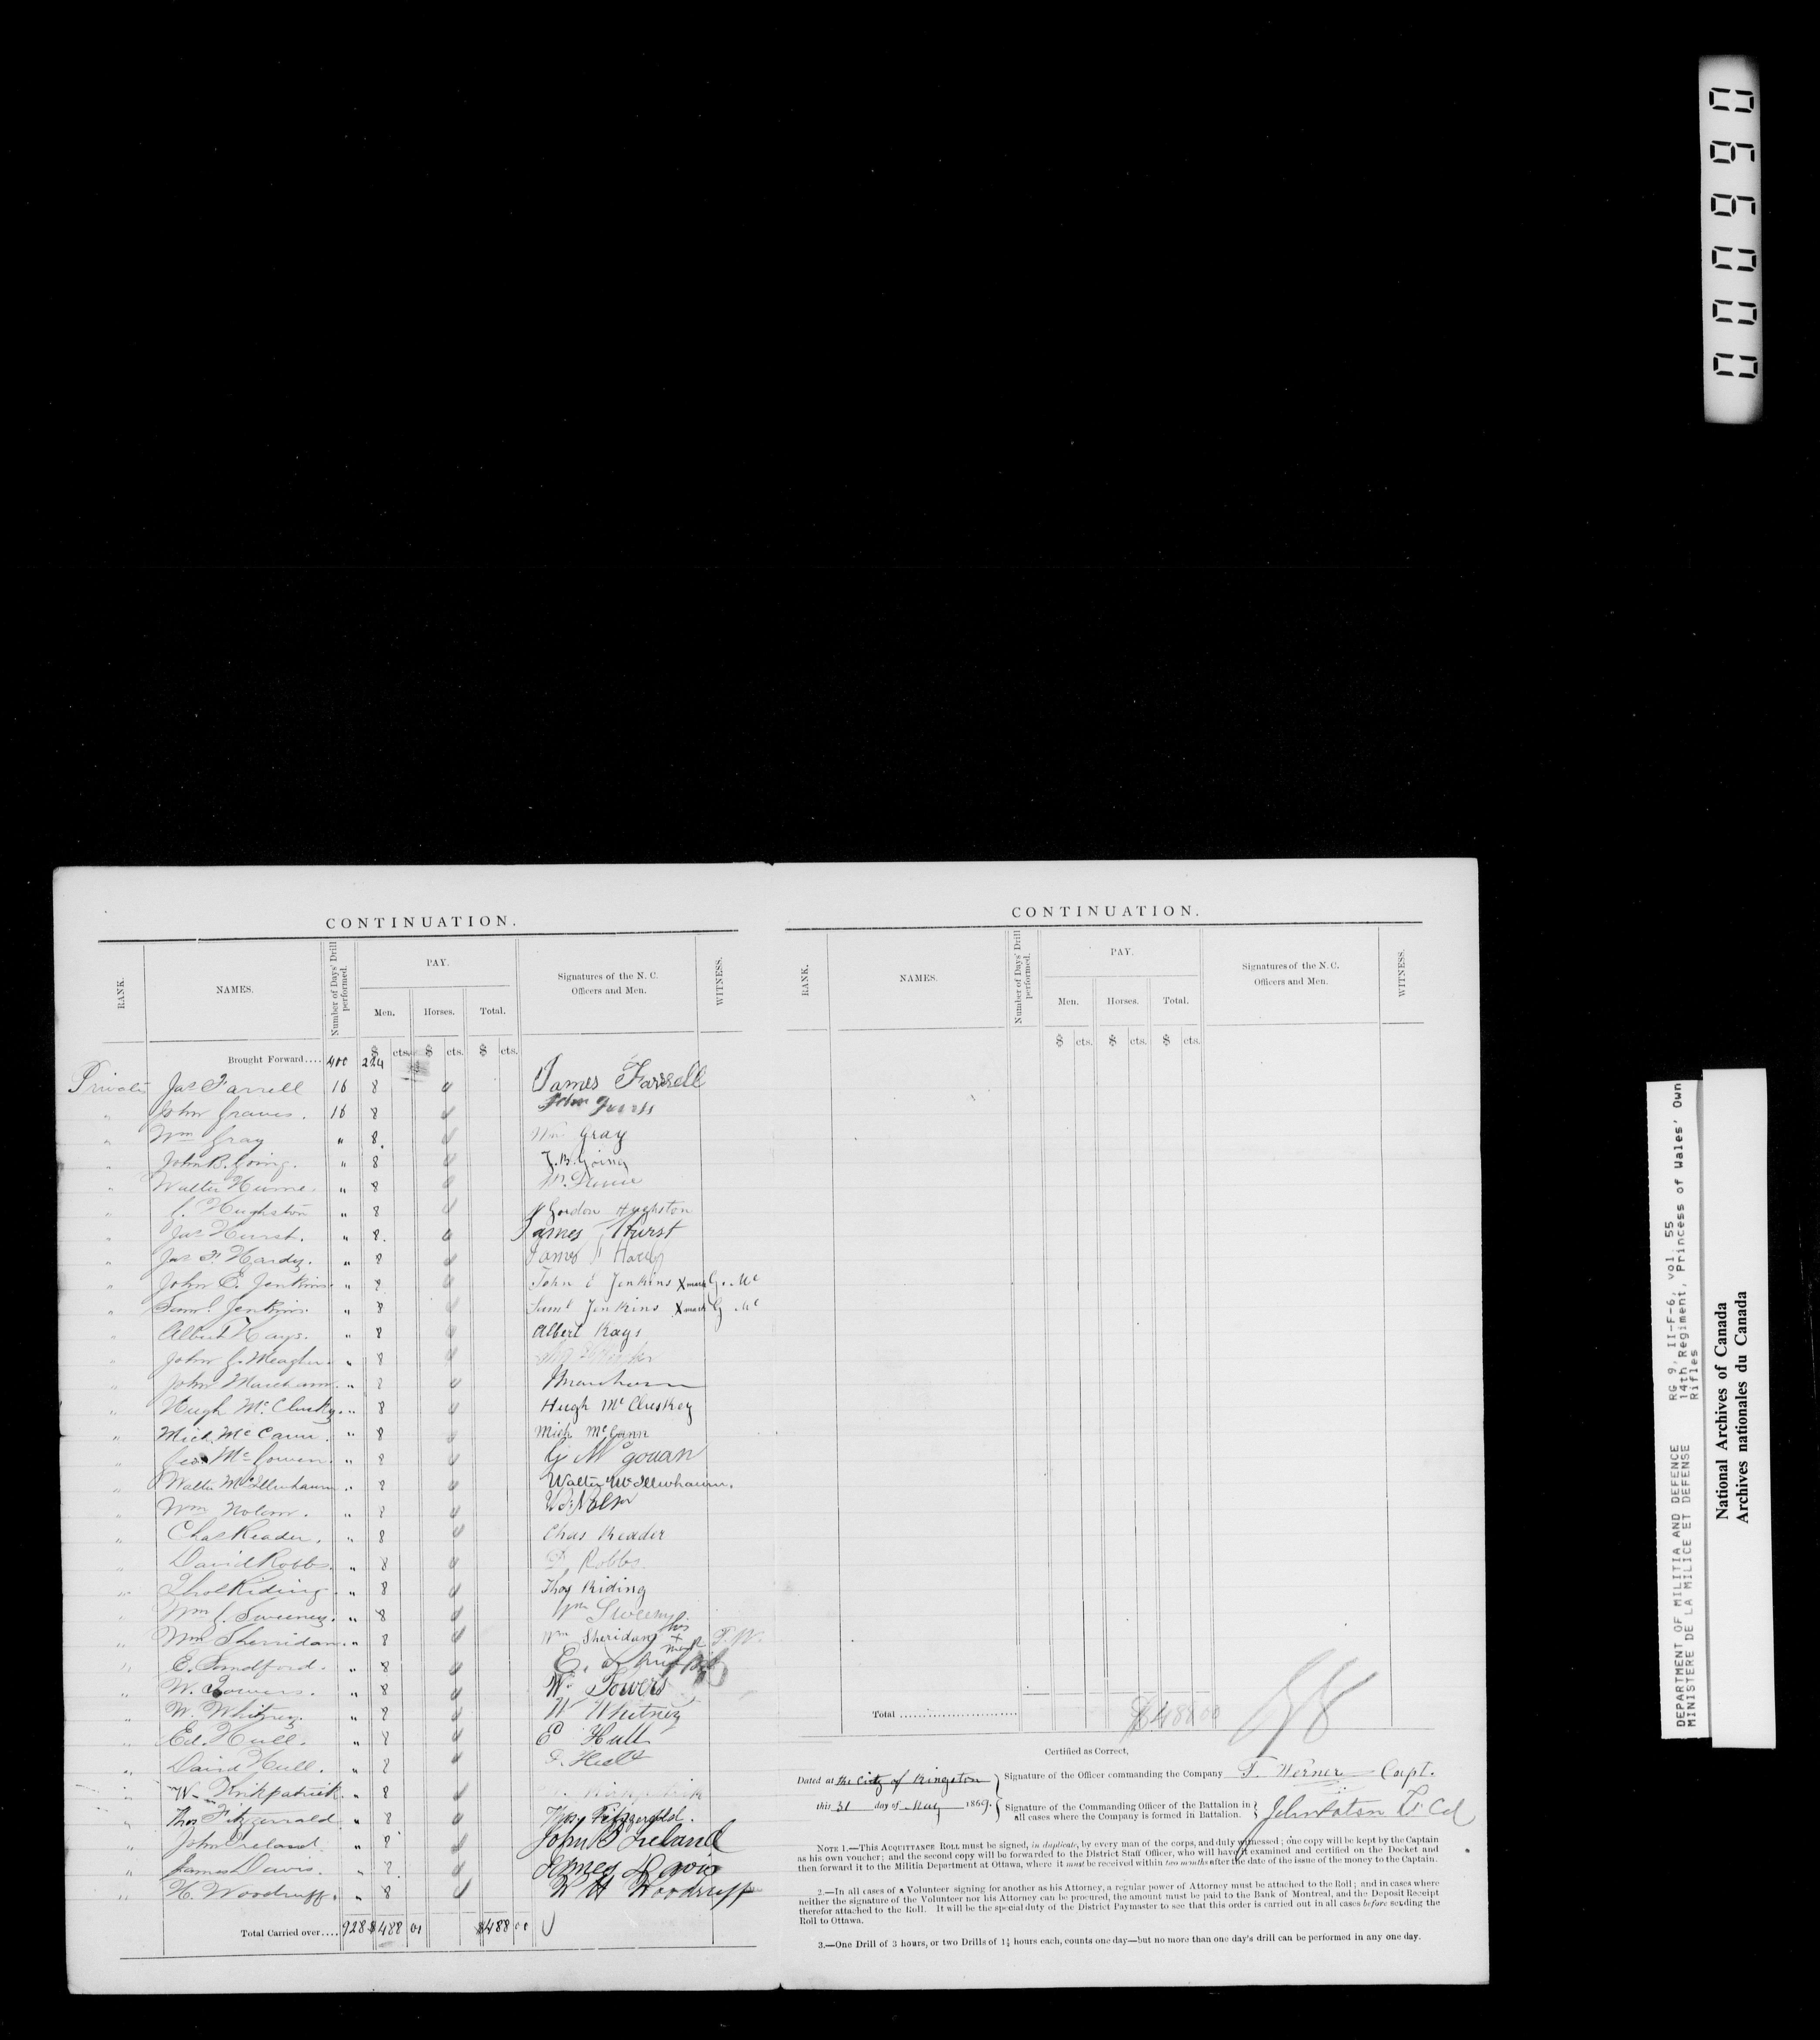 CONTINUATION.
RANK.
NAMES.
Number of Days' Drill performed.
PAY.
Men.
Horses.
Total.
Signatures of the N. C. Officers and Men.
WITNESS.
$ cts. $ cts. $ cts.
Brought Forward.... 400 224
Private Jas Farrell 16 8 James Farrell
" John Graves. 16 8 John Graves
" Wm Gray " 8 Wm Gray
" John B. Going. " 8 J. B. Going
" Walter Hume. " 8 W. Hume
" G. Hughston " 8 Gordon Hughston
" Jas Hurst. " 8 James Hurst
" Jas H. Hardy. " 8 James H Hardy
" John E. Jenkins " 8 John E Jenkins X mark G. Mc
" Saml. Jenkins " 8 Saml Jenkins X mark G Mc
" Albert Kays. " 8 Albert Kays
" John G. Meagher " 8
" John Marcham. " 8 Marcham
" Hugh McCluskey. " 8 Hugh McCluskey
" Mich. McCann. " 8 Mich McCann
" Geo. McGowen " 8 G McGouan
" Walter McIllewhaum " 8 Walter McIllewhaum.
" Wm Nolan. " 8
" Chas Reader. " 8 Chas Reader
" David Robbs. " 8 D Robbs.
" Thos Riding. " 8 Thos Riding
" Wm J. Sweeney. " 8 Wm Sweeney
" Wm Sherridan. " 8 Wm Sheridan his + mark T. W.
" E. Sandford. " 8
" W. Towers. " 8 W. Towers
" W. Whitney. " 8 W Whitney
" Ed. Hull. " 8 E Hull
" David Hull. " 8 D. Hull
" W. Kirkpatrick. " 8 Kirkpatrick
" Thos Fitzgerrald. " 8 Thos Fitzgerald.
" John Ireland. " 8 John S Ireland
" James Davis. " 8 James Davis
" H. Woodruff. " 8 W H Woodruff
Total Carried over.... 928 $488 00 $488 00
CONTINUATION.
RANK.
NAMES.
Number of Days' Drill performed.
PAY.
Men.
Horses.
Total.
Signatures of the N. C. Officers and Men.
WITNESS.
$ cts. $ cts. $ cts.
Total ........................ $488 00
Certified as Correct,
Dated at the City of Kingston } Signature of the Officer commanding the Company T. Werner Capt.
this 31 day of May 1869. { Signature of the Commanding Officer of the Battalion in all cases where the Company is formed in Battalion. } John Paton Lt. Col
NOTE 1.—This ACQUITTANCE ROLL must be signed, in duplicate, by every man of the corps, and duly witnessed; one copy will be kept by the Captain
as his own voucher; and the second copy will be forwarded to the District Staff Officer, who will have it examined and certified on the Docket and
then forward it to the Militia Department at Ottawa, where it must be received within two months after the date of the issue of the money to the Captain.
2.—In all cases of a Volunteer signing for another as his Attorney, a regular power of Attorney must be attached to the Roll; and in cases where
neither the signature of the Volunteer nor his Attorney can be procured, the amount must be paid to the Bank of Montreal, and the Deposit Receipt
therefor attached to the Roll. It will be the special duty of the District Paymaster to see that this order is carried out in all cases before sending the
Roll to Ottawa.
3.—One Drill of 3 hours, or two Drills of 1½ hours each, counts one day—but no more than one day's drill can be performed in any one day.
DEPARTMENT OF MILITIA AND DEFENCE
MINISTERE DE LA MILICE ET DEFENSE
RG 9, II-F-6, vol. 55
14th Regiment, Princess of Wales' Own
Rifles
National Archives of Canada
Archives nationales du Canada